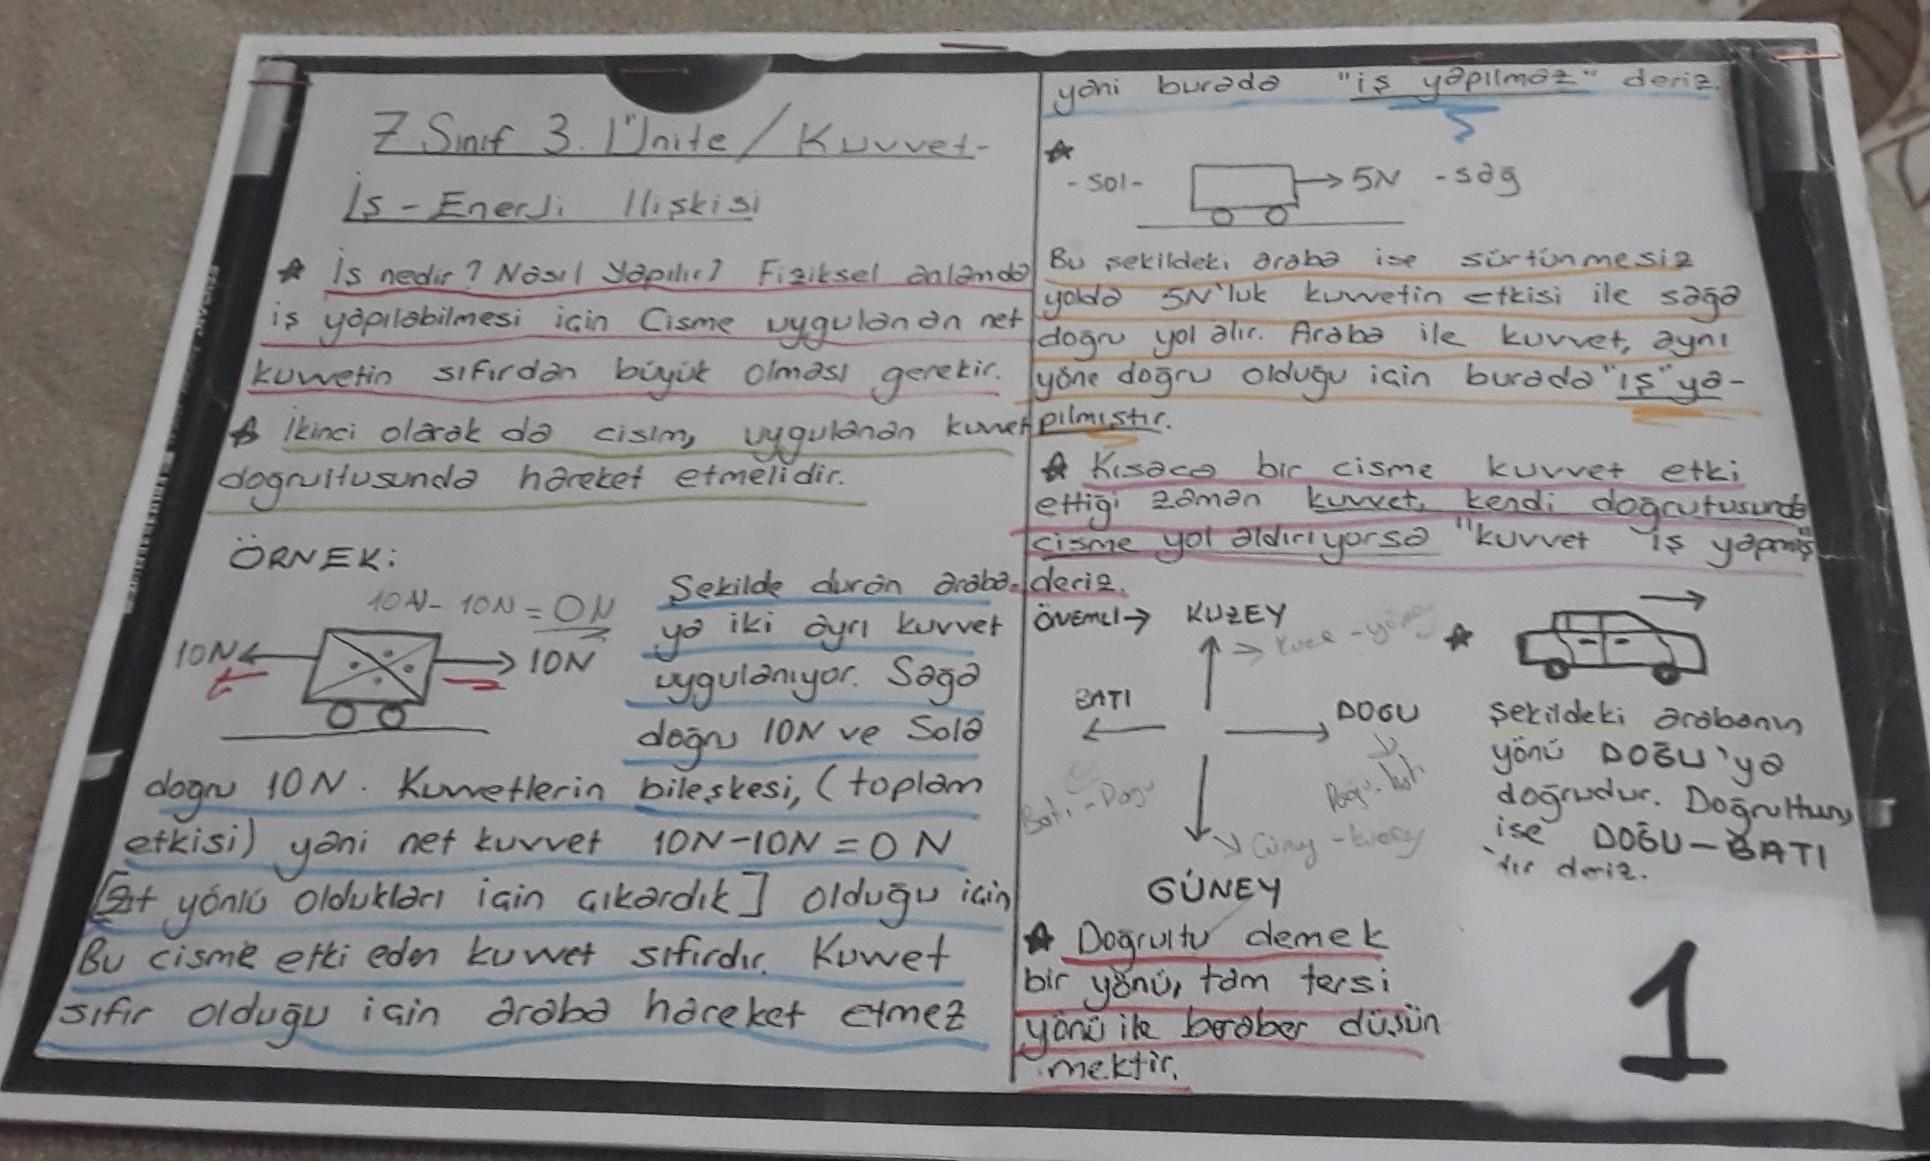 7. Sınıf 3. Ünite / Kuvvet-
İş - Enerji İlişkisi
İs nedir? Nasıl Yapılır? Fiziksel anlamda
iş yapılabilmesi için Cisme uygulanan net
kuvvetin sıfırdan büyük olması gerekir.
İkinci olarak da cisim, uygulanan kuvvet
doğrultusunda hareket etmelidir.
ÖRNEK:
10N- 10N = 0N
10N
10N
Şekilde duran araba-
ya iki ayrı kuvvet
uygulanıyor. Sağa
doğru 10N ve Sola
doğru 10N. Kuvvetlerin bileşkesi, (toplam
etkisi) yani net kuvvet 10N-10N = 0N
[Zıt yönlü oldukları için çıkardık] olduğu için
Bu cisme etki eden kuvvet sıfırdır. Kuvvet
sıfır olduğu için araba hareket etmez
yani burada "iş yapılmaz" deriz.
- sol -
5N - sağ
Bu şekildeki araba ise sürtünmesiz
yolda 5N'luk kuvvetin etkisi ile sağa
doğru yol alır. Araba ile kuvvet, aynı
yöne doğru olduğu için burada "iş" ya-
pılmıştır.
Kısaca bir cisme kuvvet etki
ettiği zaman kuvvet, kendi doğrutusunda
cisme yol aldırıyorsa "kuvvet iş yapmış"
deriz.
ÖNEMLİ→ KUZEY
BATI
DOGU
Batı - Dogu
Güney - kuzey
GÜNEY
Şekildeki arabanın
yönü DOĞU'ya
doğrudur. Doğrultusu
ise DOĞU-BATI
'tır deriz.
Doğrultu demek
bir yönü, tam tersi
yönü ile beraber düşün
mektir.
1